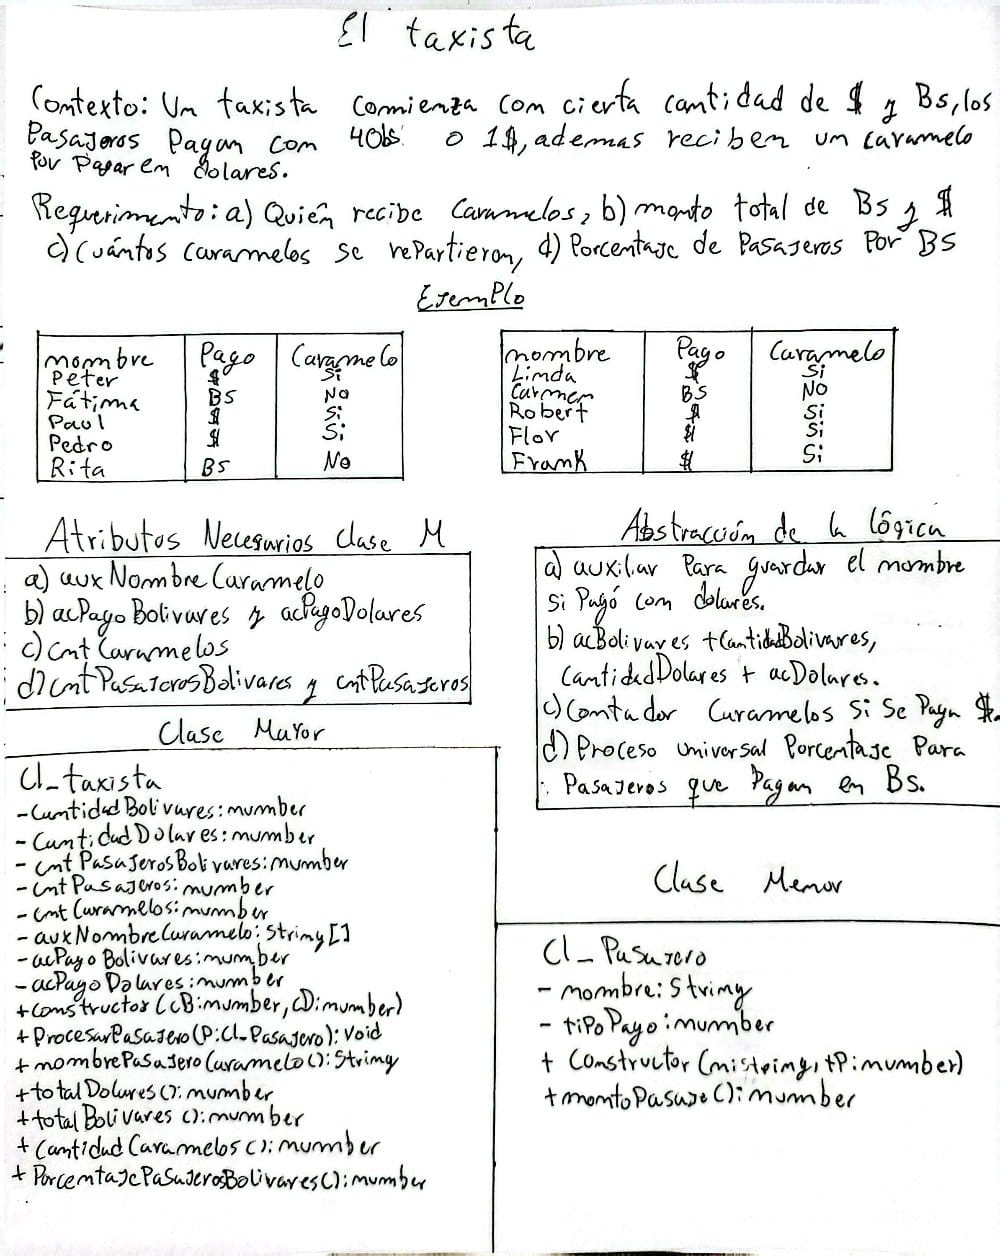 El taxista
Contexto: Un taxista comienza con cierta cantidad de $ y Bs, los
Pasajeros Pagan con 40bs. o 1$, ademas reciben un caramelo
Por Pagar en dolares.
Requerimento: a) Quién recibe Caramelos, b) monto total de Bs y $
c) Cuántos caramelos se repartieron, d) Porcentaje de Pasajeros Por BS
Ejemplo
nombre Pago Caramelo
Peter $ Si
Fátima BS No
Paul $ Si
Pedro $ Si
Rita BS No
nombre Pago Caramelo
Linda $ Si
Carmen BS NO
Robert $ Si
Flor $ Si
Frank $ Si
Atributos Necesarios clase M
a) auxNombreCaramelo
b) acPagoBolivares y acPagoDolares
c) cntCaramelos
d) cntPasajerosBolivares y cntPasajeros
Abstracción de la lógica
a) auxiliar Para guardar el nombre
si Pagó con dolares.
b) acBolivares + CantidadBolivares,
CantidadDolares + acDolares.
c) Contador Caramelos Si Se Paga $.
d) Proceso universal Porcentaje Para
Pasajeros que Pagan en Bs.
Clase Mayor
Cl_taxista
- CantidadBolivares: number
- CantidadDolares: number
- cntPasajerosBolivares: number
- cntPasajeros: number
- cntCaramelos: number
- auxNombreCaramelo: String[]
- acPagoBolivares: number
- acPagoDolares: number
+ constructor (cB: number, cD: number)
+ ProcesarPasajero (P: Cl_Pasajero): void
+ nombrePasajeroCaramelo (): String
+ totalDolares (): number
+ totalBolivares (): number
+ CantidadCaramelos (): number
+ PorcentajePasajerosBolivares (): number
Clase Menor
Cl_Pasajero
- nombre: String
- tipoPago: number
+ Constructor (n: string, tP: number)
+ montoPasaje (): number